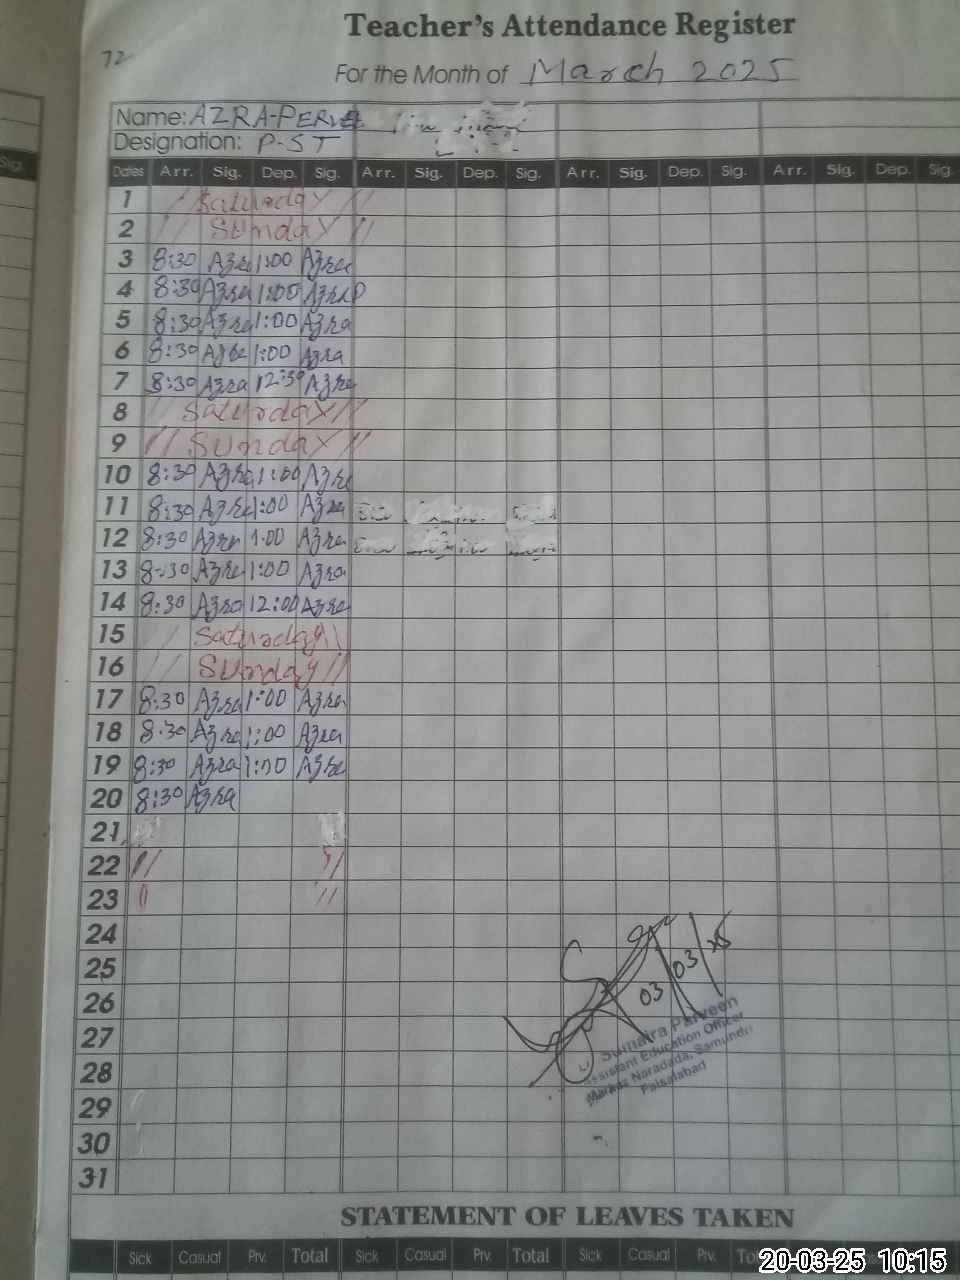 72
Teacher's Attendance Register
For the Month of March 2025
Name: AZRA-PERVE
Designation: P-ST
Dates Arr. Sig. Dep. Sig. Arr. Sig. Dep. Sig. Arr. Sig. Dep. Sig. Arr. Sig. Dep. Sig.
1 // Saturday //
2 // Sunday //
3 8:30 Azra 1:00 Azra
4 8:30 Azra 1:00 AzraP
5 8:30 Azra 1:00 Azra
6 8:30 Azra 1:00 Azra
7 8:30 Azra 12:30 Azra
8 // Saturday //
9 // Sunday //
10 8:30 Azra 1:00 Azra
11 8:30 Azra 1:00 Azra
12 8:30 Azra 1:00 Azra
13 8:30 Azra 1:00 Azra
14 8:30 Azra 12:00 Azra
15 // Saturday \\
16 // Sunday //
17 8:30 Azra 1:00 Azra
18 8:30 Azra 1:00 Azra
19 8:30 Azra 1:00 Azra
20 8:30 Azra
21
22 // //
23 // //
24
25
26
27
28
29
30
31
03/03/25
Sumaira Parveen
Assistant Education Officer
Markaz Naradada, Samundri
Faisalabad
STATEMENT OF LEAVES TAKEN
Sick Casual Prv. Total Sick Casual Prv. Total Sick Casual Prv.
20-03-25 10:15